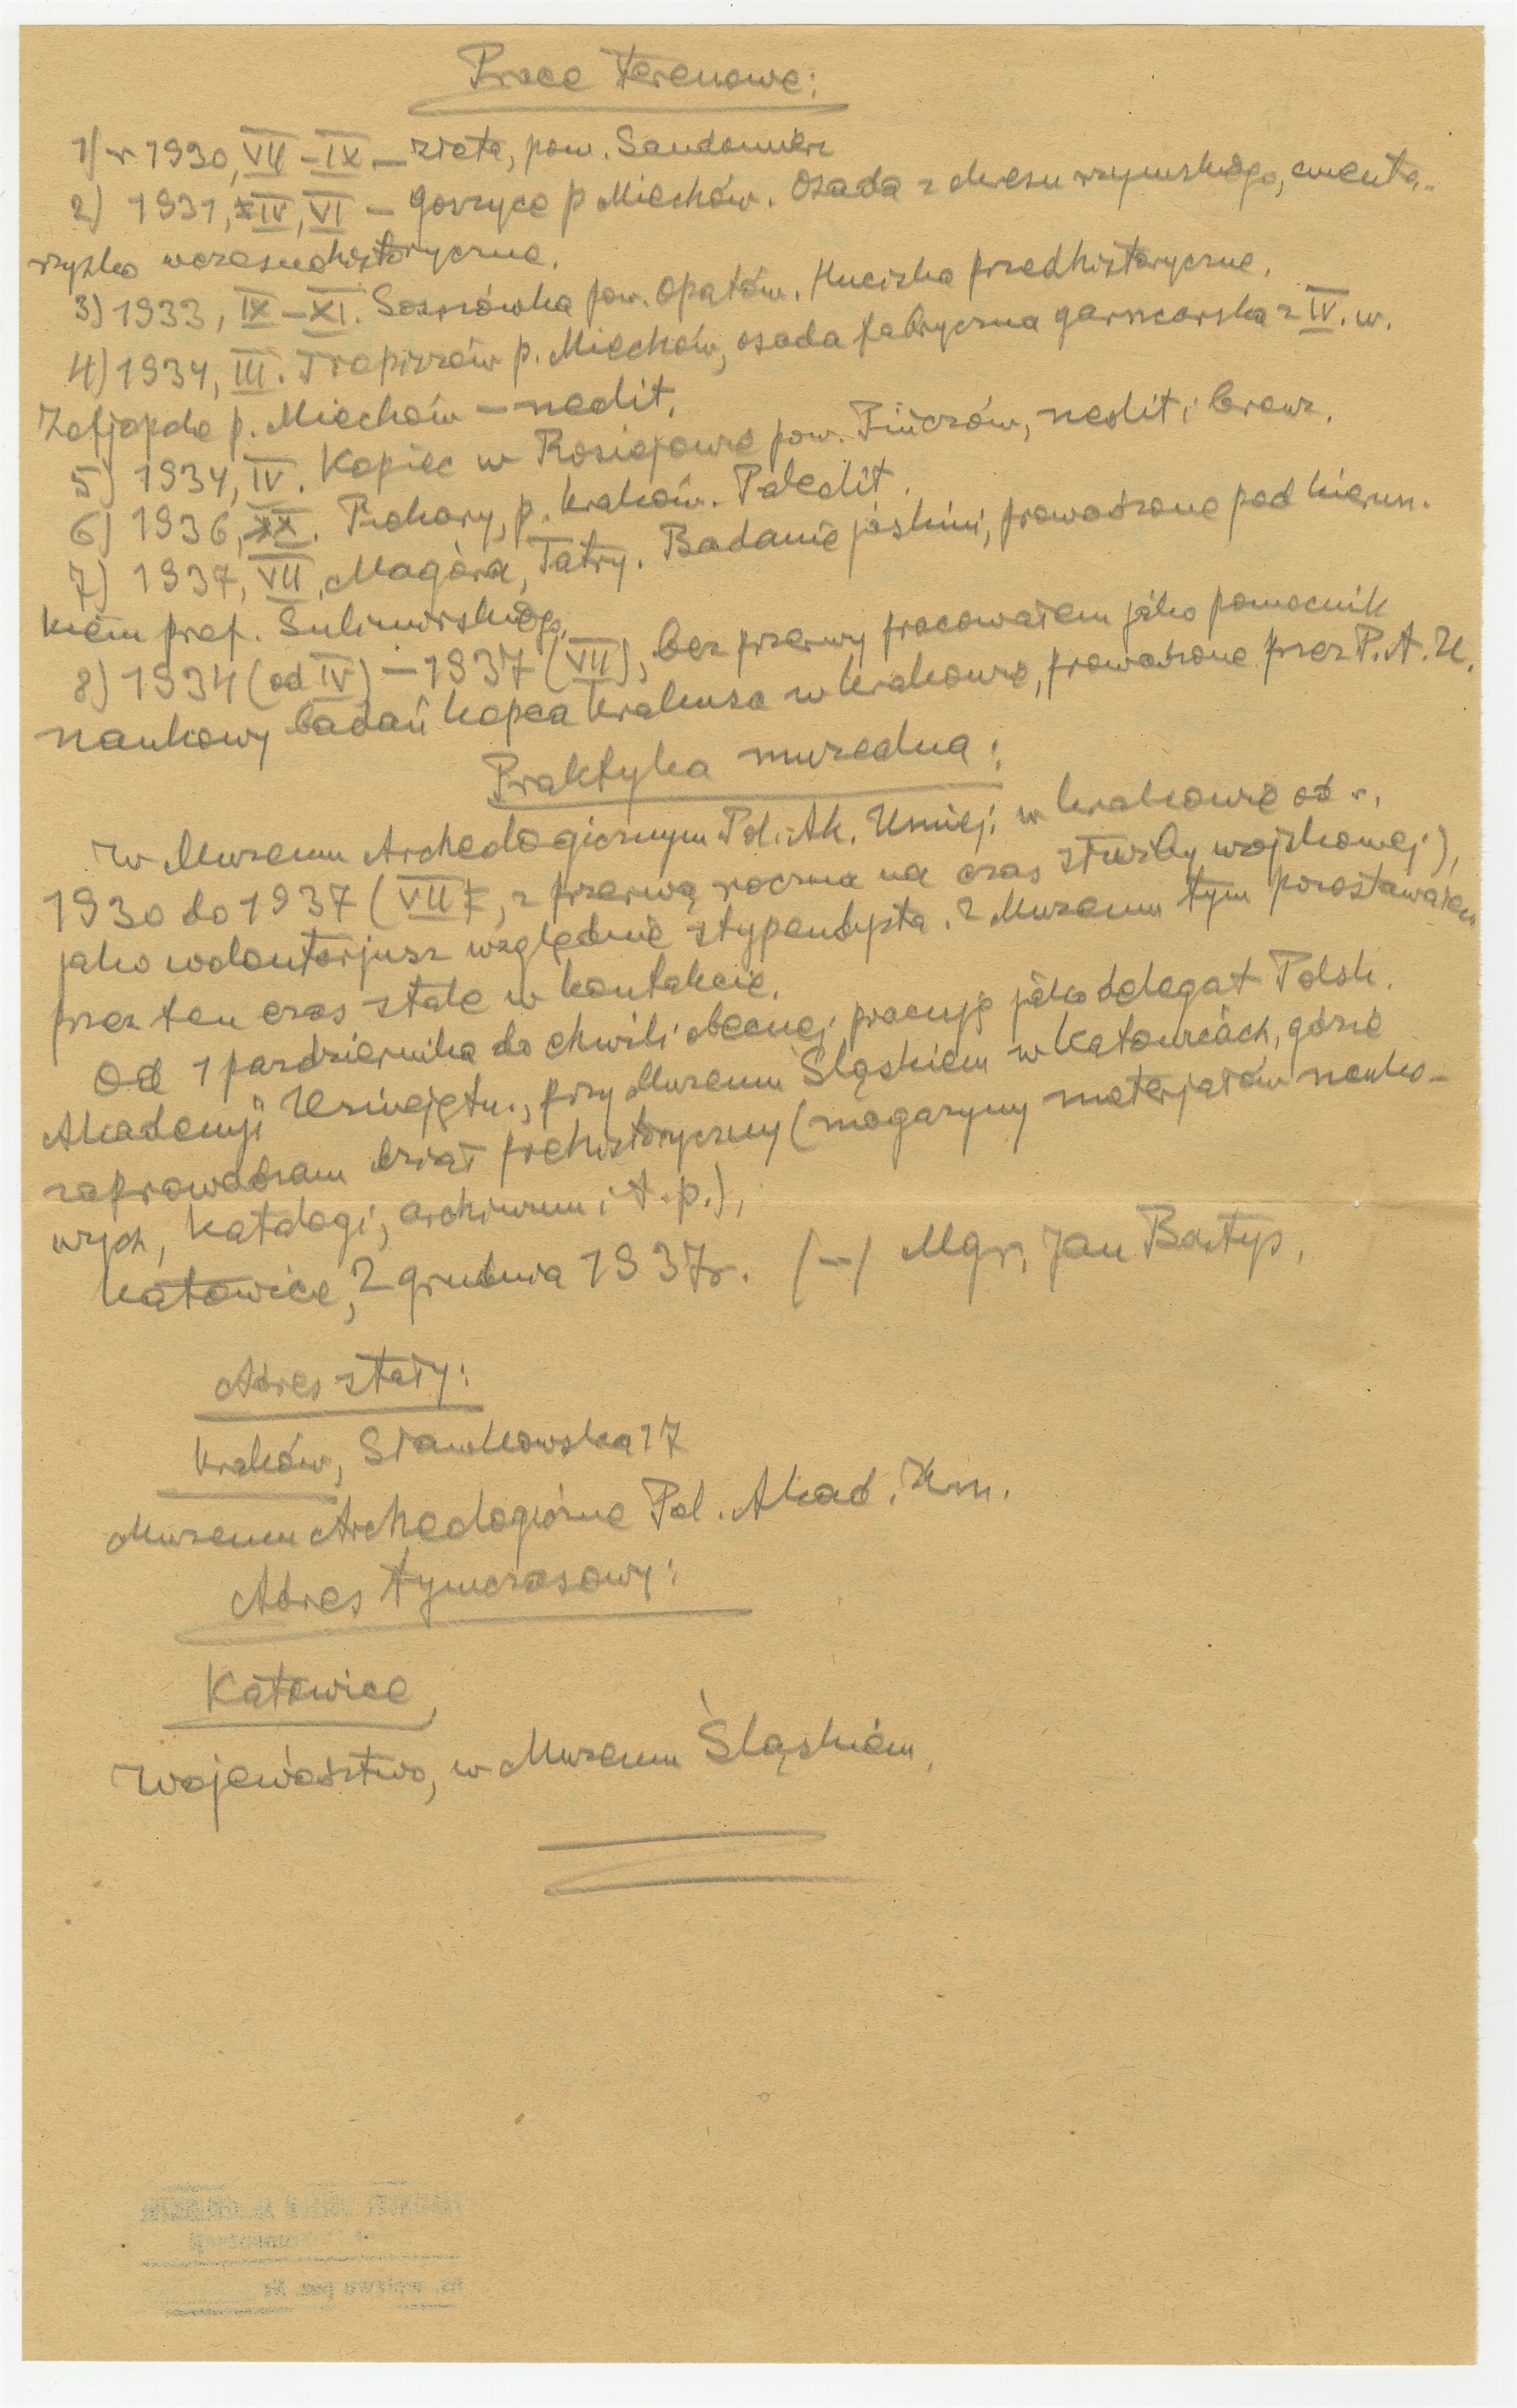 Prace terenowe:
1) r 1930, VII – IX – Złota, pow. Sandomierz
2) 1931, IV, VI – Gorzyce p Miechów. Osada z okresu rzymskiego, cmenta-
rzysko wczesnohistoryczne.
3) 1933, IX – XI. Sosnówka pow. Opatów. Hucisko przedhistoryczne.
4) 1934, III. Tropiszów p. Miechów, osada fabryczna garncarska z IV. w.
p. Miechów – neolit.
5) 1934, IV. Kopiec w Rosiejowie pow. Pińczów, neolit i bronz.
6) 1936, X. Piekary, p. Kraków. Paleolit.
7) 1937, VII, Magóra, Tatry. Badanie jaskini, prowadzone pod kierun.
kiem prof. Sulimirskiego.
8) 1934 (od IV) – 1937 (VII), bez przerwy pracowałem jako pomocnik
naukowy badań kopca Krakusa w Krakowie, prowadzone przez P. A. U.
Praktyka muzealna:
W Muzeum Archeologicznym Pol. Ak. Umiej. w Krakowie od r.
1930 do 1937 (VII, z przerwą roczna na czas służby wojskowej),
jako wolontarjusz względnie stypendysta. Z Muzeum tym pozostawałem
przez ten czas stale w kontakcie.
Od 1 października do chwili obecnej pracuję jako delegat Polsk.
Akademji Umiejętn., przy Muzeum Śląskiem w Katowicach, gdzie
zaprowadzam dział prehistoryczny (magazyny materjałów nauko-
wych, katalogi, archiwum i t. p.),
Katowice, 2 grudnia 1937 r. /–/ Mgr. Jan Bartys.
Adres stały:
Kraków, Sławkowska 17
Muzeum Archeologiczne Pol. Akad. Um.
Adres tymczasowy:
Katowice,
Województwo, w Muzeum Śląskiem.